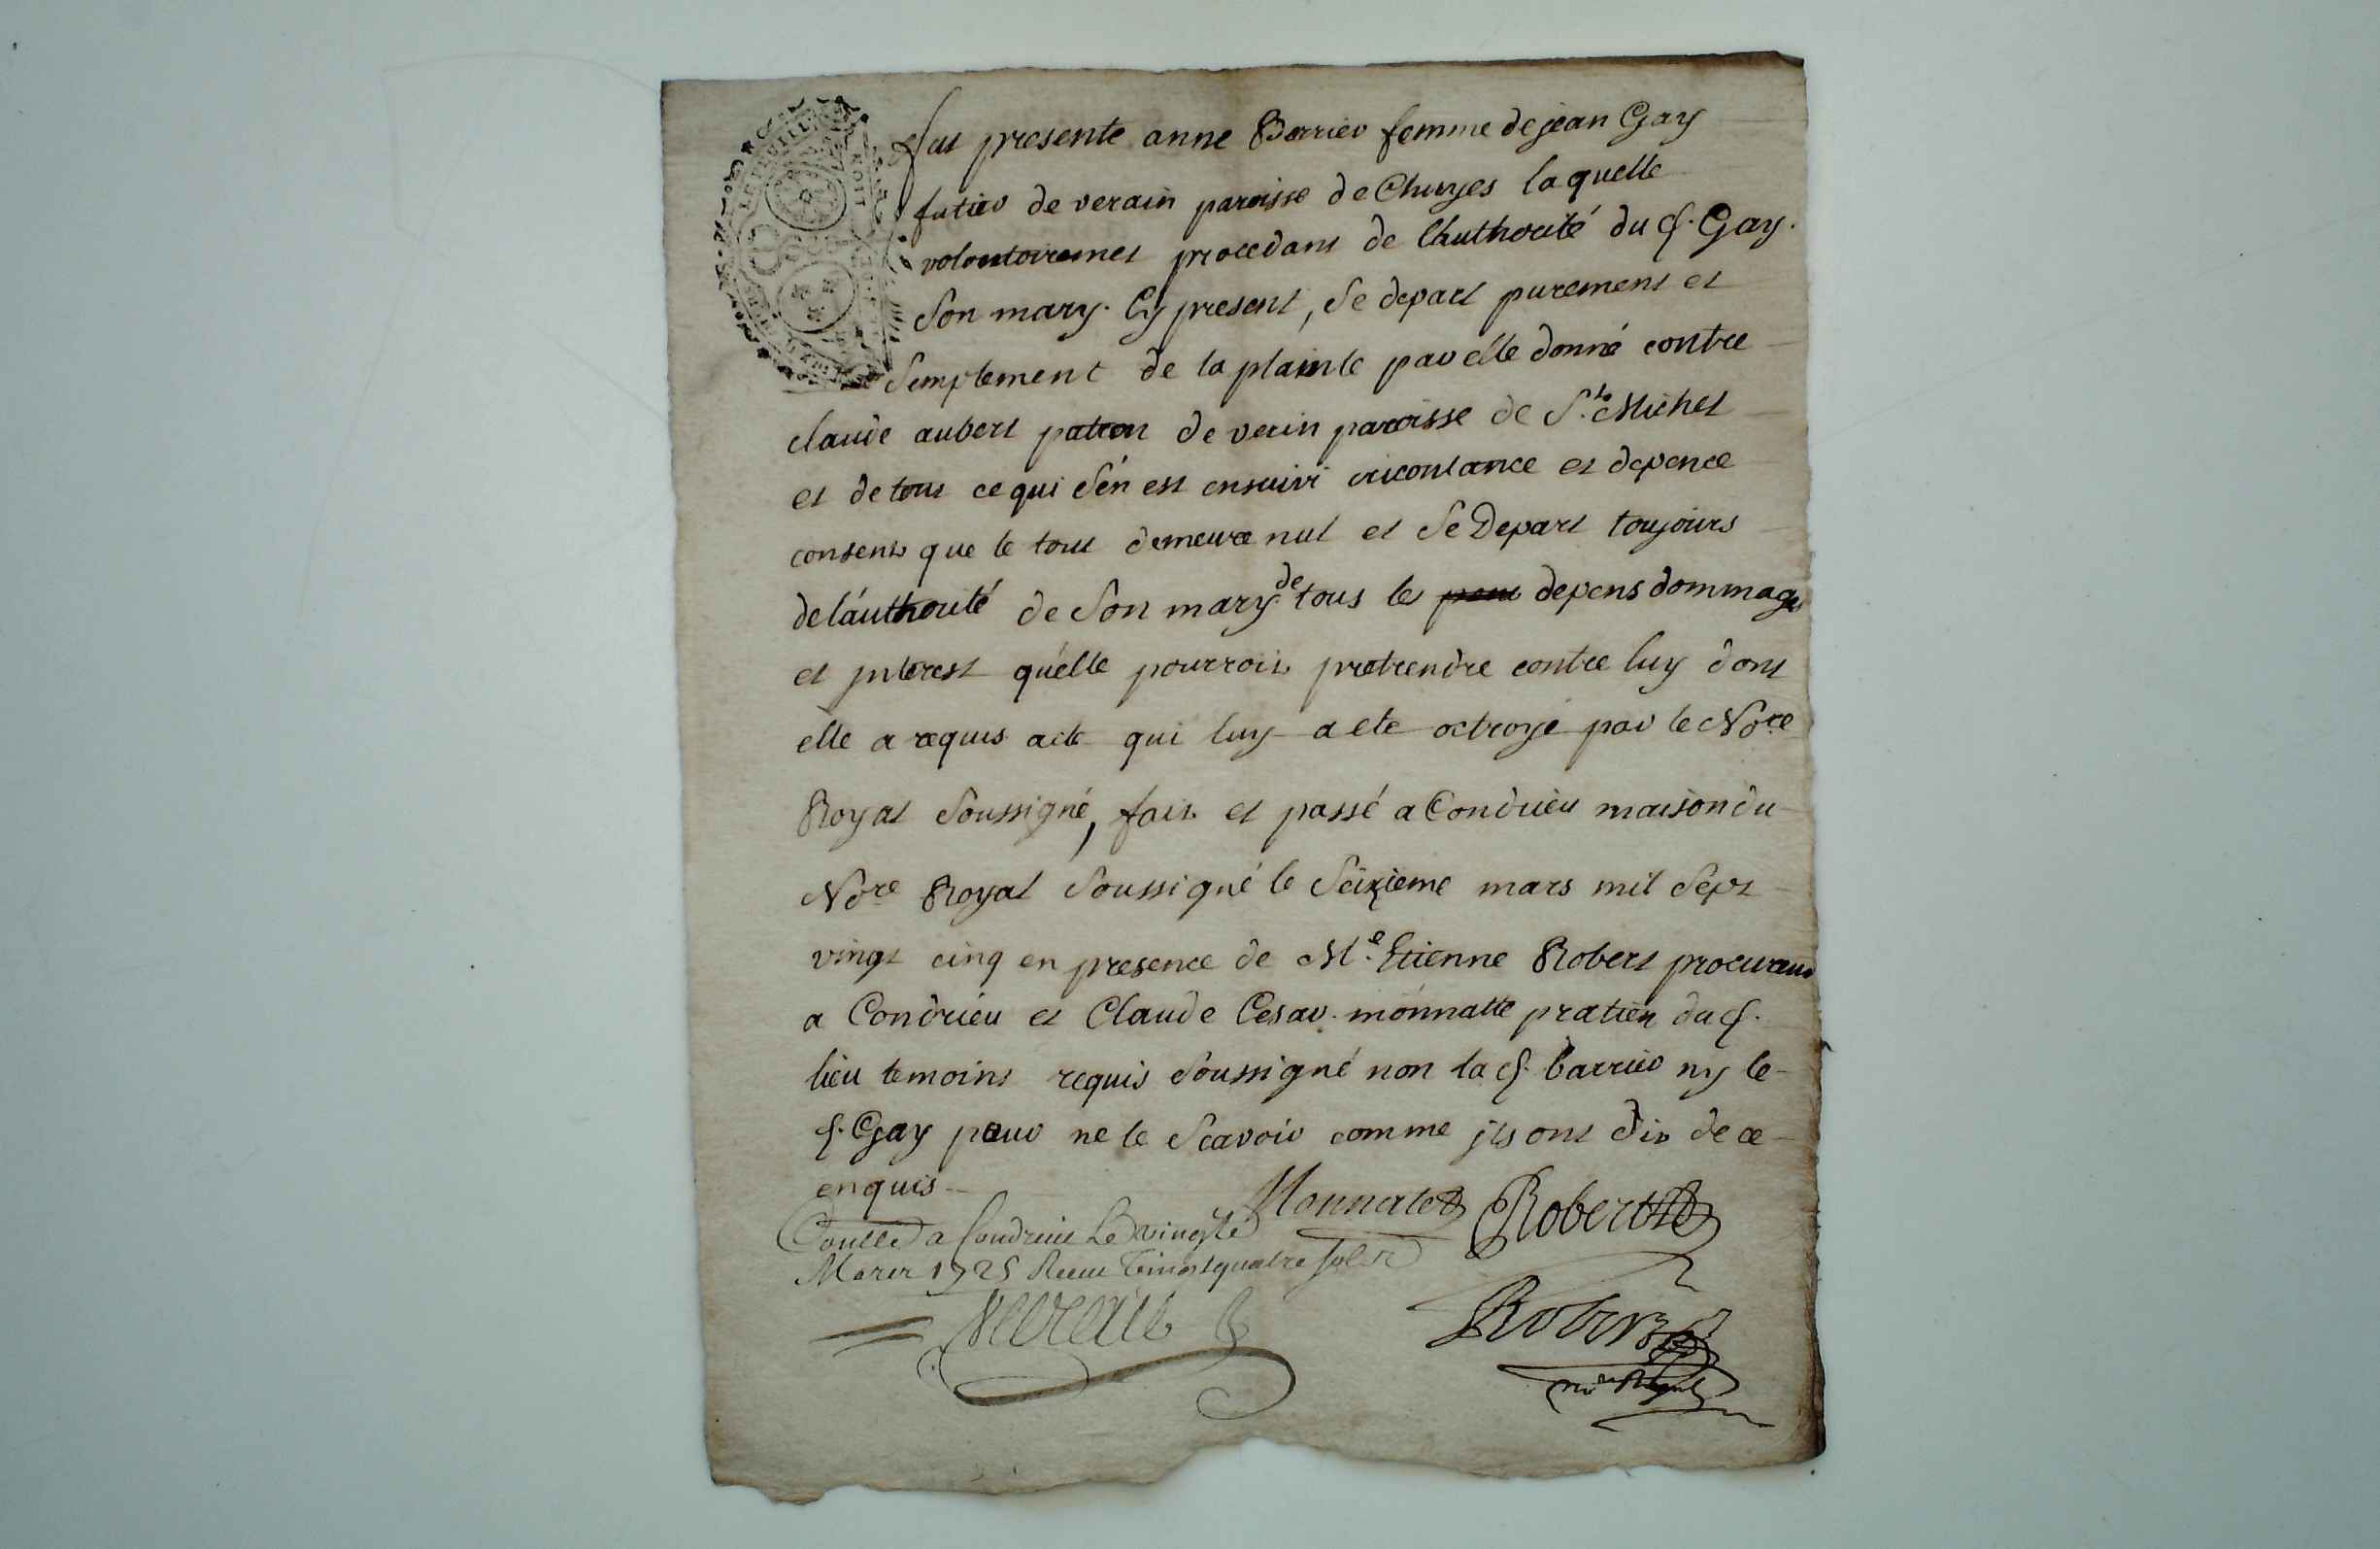 fut presente anne Barrier femme de jean Gay
futier de verain paroisse de Chuyes laquelle
volontairement procedant de l'authorité du d. Gay
Son mary. Cy present, Se depart purement et
Simplement de la plainte par elle donné contre
claude aubert patron de verin paroisse de St. Michel
et de tout ce qui S'en est ensuivi circontance et depence
consent que le tout demeure nul et Se Depart toujours
de l'authorité de Son mary de tous les depens dommages
et jnterest qu'elle pourroit pretrendre contre luy dont
elle a requis acte qui luy a ete octroyé par le No.re
Royal Soussigné, fait et passé a Condrieu maison du
No.re Royal Soussigné le Seizieme mars mil Sept
vingt cinq en presence de M.e Etienne Robert procureur
a Condrieu et Claude Cesar monnatte pratien du d.
lieu temoins requis Soussigné non la d. barrier ny le
d. Gay pour ne le Scavoir comme jls ont dit de ce
enquis
Monnate Robert
a Condrieu Le vingt
Mars 1725 Receu vingt quatre sols
Robert
no.re Royal